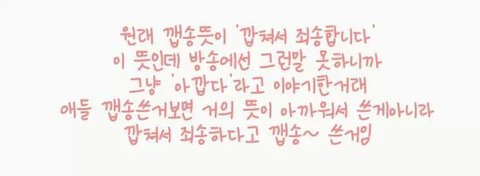 원래 깹송뜻이 '깝쳐서 죄송합니다'
이 뜻인데 방송에선 그런말 못하니까
그냥 '아깝다'라고 이야기한거래
애들 깹송쓴거보면 거의 뜻이 아까워서 쓴게아니라
깝쳐서 죄송하다고 깹송~ 쓴거임